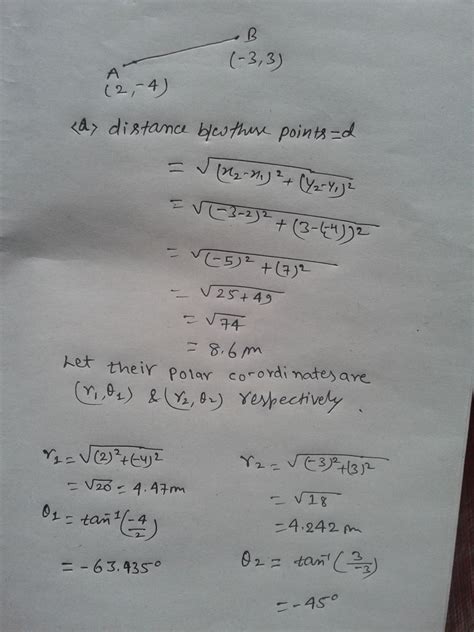 B
(-3,3)
A
(2,-4)
<a> distance b/w these points = d
= √(x₂-x₁)² + (y₂-y₁)²
= √(-3-2)² + (3-(-4))²
= √(-5)² + (7)²
= √25+49
= √74
= 8.6 m
Let their polar co-ordinates are
(r₁,θ₁) & (r₂,θ₂) respectively.
r₁ = √(2)²+(-4)²
= √20 = 4.47m
θ₁ = tan⁻¹(-4/2)
= -63.435°
r₂ = √(-3)²+(3)²
= √18
= 4.242 m
θ₂ = tan⁻¹(3/-3)
= -45°